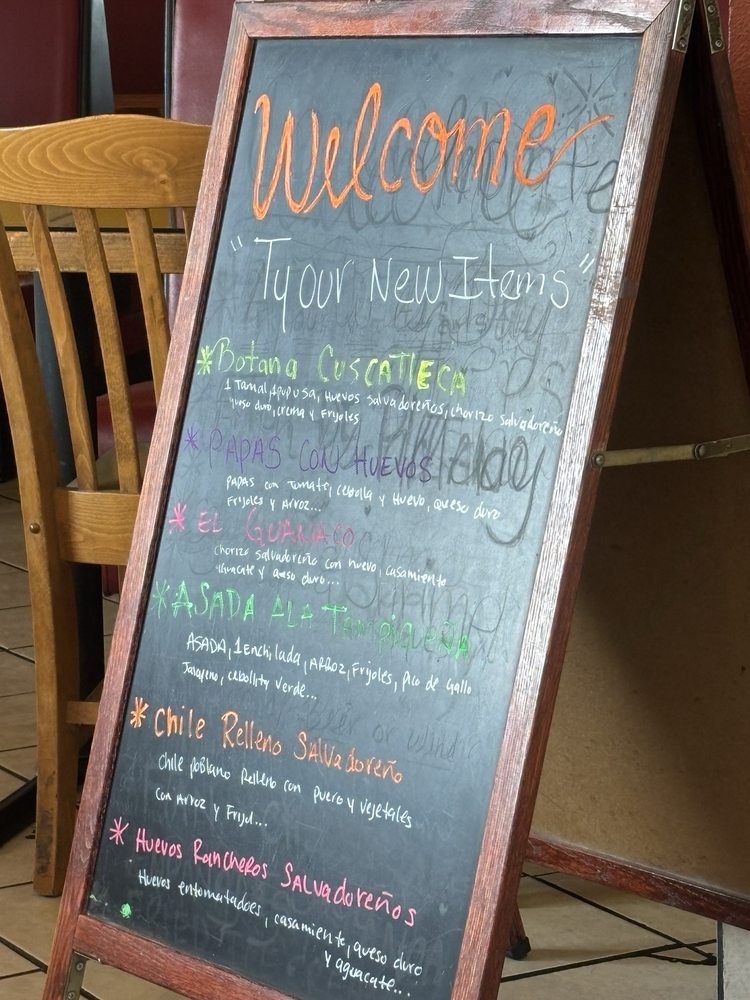 Welcome
"Ty our New Items"
*Botana CuscATlEcA
1 Tamal, 1 pupusa, Huevos Salvadoreños, chorizo salvadoreño
queso duro, crema y Frijoles
*PAPAS CON HUEVOS
PAPAS con Tomate, cebolla y Huevo, queso duro
Frijoles y Arroz...
*EL GUANACO
chorizo salvadoreño con huevo, casamiento
aguacate y queso duro...
*ASADA ALA TampiqueñA
ASADA, 1 Enchilada, ARROZ, Frijoles, pico de Gallo
Jalapeno, cebollita verde...
*Chile Relleno SAlvadoreño
chile poblano Relleno con puero y vejetales
con Arroz y Frijol...
*Huevos RancheRos SALvadoReños
Huevos entomatados, casamiento, queso duro
y aguacate...